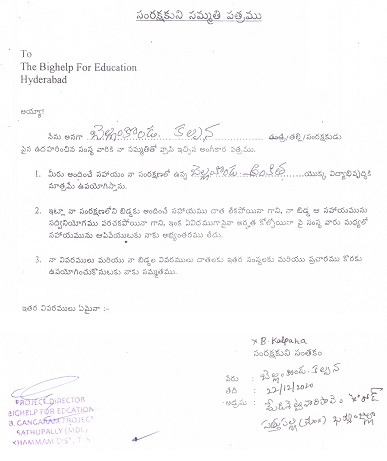 సంరక్షకుని సమ్మతి పత్రము
To
The Bighelp For Education
Hyderabad
అయ్యా!
నేను అనగా బెల్లంకొండ. కల్పన తండ్రి/తల్లి/సంరక్షకుడు
పైన ఉదహరించిన సంస్థ వారికి నా సమ్మతితో వ్రాసి ఇచ్చిన అంగీకార పత్రము.
1. మీరు అందించే సహాయం నా సంరక్షణలో ఉన్న బెల్లంకొండ యొక్క విద్యాభివృద్ధికి
మాత్రమే ఉపయోగిస్తాను.
2. ఇట్లా నా సంరక్షణలోని బిడ్డకు అందించే సహాయము దాత లేకపోయినా గాని, నా బిడ్డ ఆ సహాయమును
సద్వినియోగము పరచకపోయినా గాని, ఇంక ఏవిధముగానైనా అర్హత కోల్పోయినా పై సంస్థ వారు మధ్యలో
సహాయమును ఆపివేయుటకు నాకు అభ్యంతరము లేదు.
3. నా వివరములు మరియు నా బిడ్డల వివరములు దాతలకు ఇతర సంస్థలకు మరియు ప్రచారము కొరకు
ఉపయోగించుకొనుటకు నాకు సమ్మతము.
ఇతర వివరములు ఏమైనా :-
x B. Kalpana
సంరక్షకుని సంతకం
పేరు : బెల్లంకొండ. కల్పన
తేది : 22/12/2020
అడ్రసు :
సత్తుపల్లి (మం) ఖమ్మం జిల్లా
PROJECT DIRECTOR
BIGHELP FOR EDUCATION
B. GANGARAM PROJECT
SATHUPALLY (MDL)
KHAMMAM DIST, T.S.